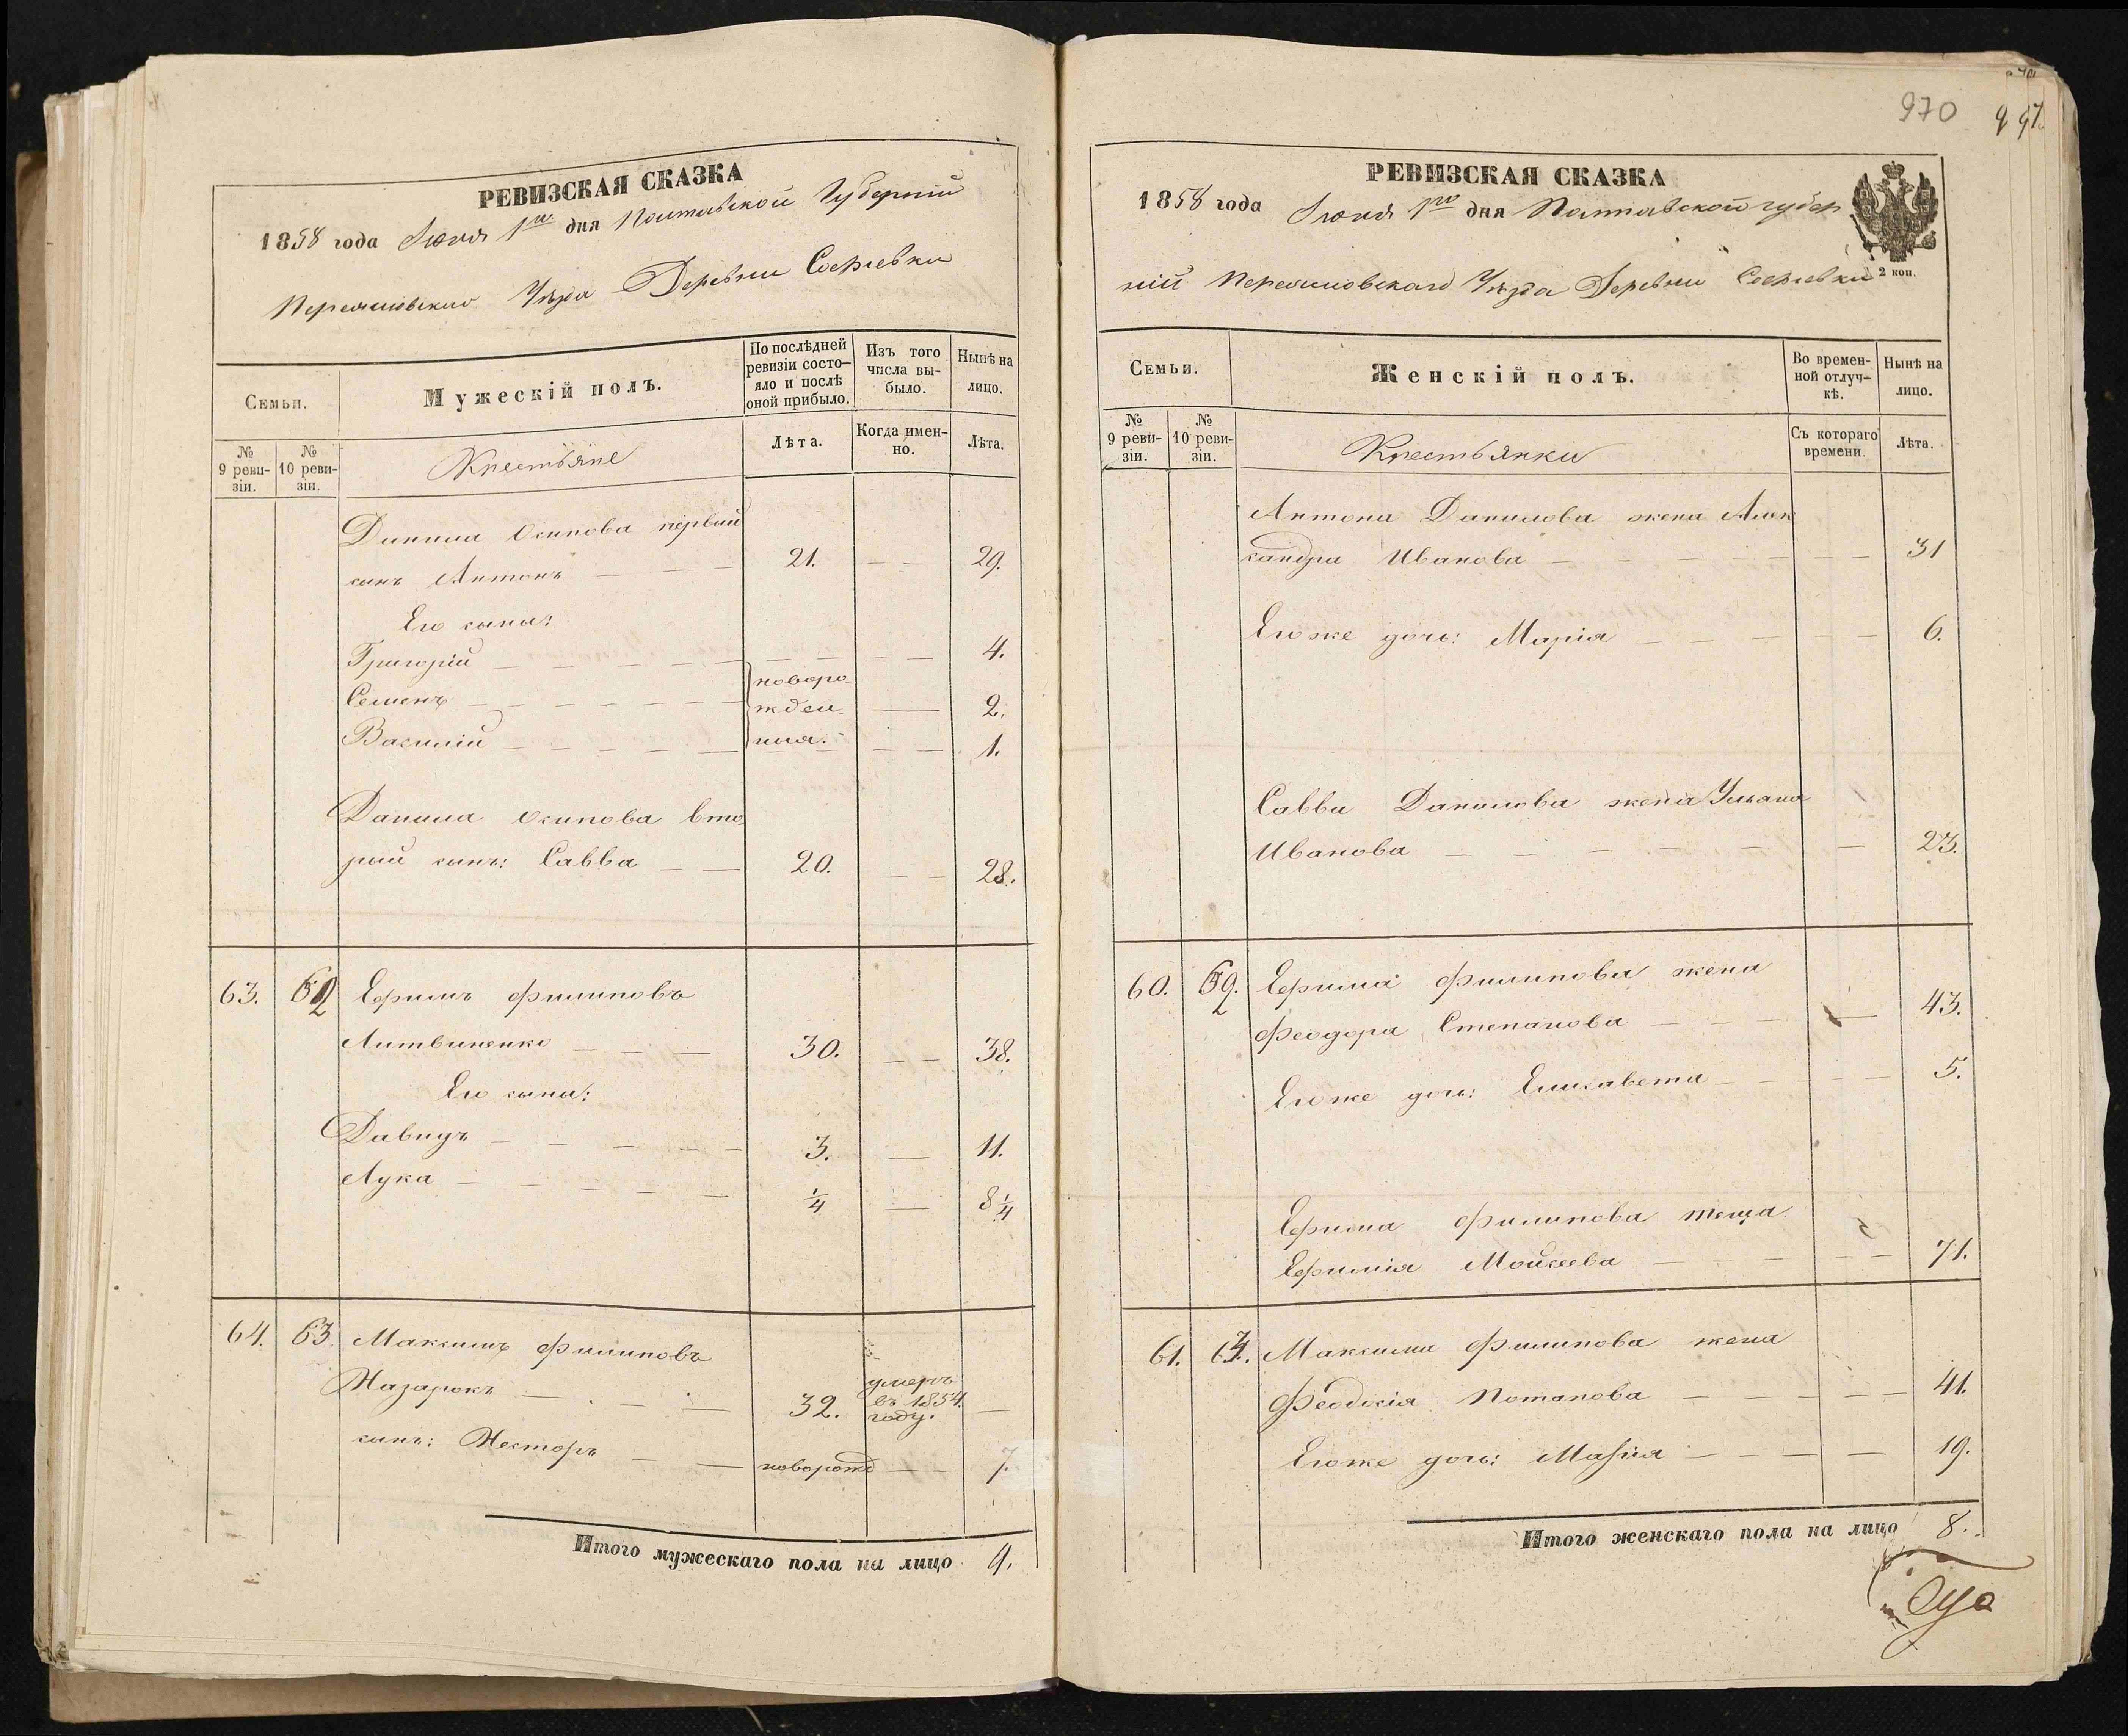 970
РЕВИЗСКАЯ СКАЗКА
1858 года Июня 1го дня Полтавской Губерніи
Переяславскаго Уѣзда Деревни Софіевки
Семьи.
Мужескій полъ.
По послѣдней ревизіи состояло и послѣ оной прибыло.
Изъ того числа выбыло.
Нынѣ на лицо.
№ 9 ревизіи.
№ 10 ревизіи.
Крестьяне
Лѣта.
Когда именно.
Лѣта.
Данила Осипова первый
сынъ Антонъ — — — 21. — — 29.
Его сыны:
Григорій — — — — — — 4.
Семенъ — — — — — новоро- — 2.
жден
Василій — — — — — ныя. — — 1.
Данила Осипова вто-
рый сынъ: Савва — — 20. — — 28.
63. 62 Ефимъ Филиповъ
Литвиненко — — — 30. — — 38.
Его сыны:
Давидъ — — — — — 3. — 11.
Лука — — — — — 1/4 — 8 1/4
64. 63. Максимъ Филиповъ
Назарокъ — — — 32. умеръ въ 1854. году. —
сынъ: Несторъ — — новорожд — — 7.
Итого мужескаго пола на лицо 9.
РЕВИЗСКАЯ СКАЗКА
1858 года Июня 1го дня Полтавской губер
ніи Переяславскаго Уѣзда Деревни Софіевки
2 коп.
Семьи.
Женскій полъ.
Во временной отлучкѣ.
Нынѣ на лицо.
№ 9 ревизіи.
№ 10 ревизіи.
Крестьянки
Съ котораго времени.
Лѣта.
Антона Данилова жена Алек
сандра Иванова — — — — — 31
Его же дочь: Марія — — — — — 6.
Саввы Данилова жена Ульяна
Иванова — — — — — — — 23.
60. 62. Ефима Филипова жена
Феодора Степанова — — — — 43.
Его же дочь: Елисавета — — — — 5.
Ефима Филипова теща
Ефимія Мойсеева — — — — 71.
61. 63. Максима Филипова жена
Феодосія Потапова — — — — — 41.
Его же дочь: Марія — — — — 19.
Итого женскаго пола на лицо 8.